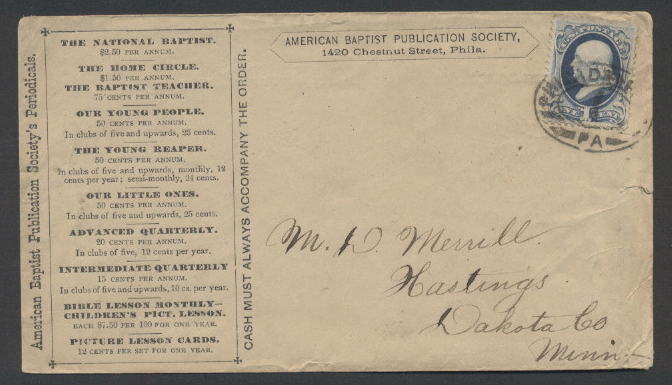 American Baptist Publication Society's Periodicals.
THE NATIONAL BAPTIST.
$2.50 PER ANNUM.
THE HOME CIRCLE.
$1.50 PER ANNUM.
THE BAPTIST TEACHER.
75 CENTS PER ANNUM.
OUR YOUNG PEOPLE.
50 CENTS PER ANNUM.
In clubs of five and upwards, 25 cents.
THE YOUNG REAPER.
50 CENTS PER ANNUM.
In clubs of five and upwards, monthly, 12
cents per year; semi-monthly, 24 cents.
OUR LITTLE ONES.
50 CENTS PER ANNUM.
In clubs of five and upwards, 25 cents.
ADVANCED QUARTERLY.
20 CENTS PER ANNUM.
In clubs of five, 12 cents per year.
INTERMEDIATE QUARTERLY
15 CENTS PER ANNUM.
In clubs of five and upwards, 10 cs. per year.
BIBLE LESSON MONTHLY—
CHILDREN'S PICT. LESSON.
EACH $7.50 PER 100 FOR ONE YEAR.
PICTURE LESSON CARDS.
12 CENTS PER SET FOR ONE YEAR.
CASH MUST ALWAYS ACCOMPANY THE ORDER.
AMERICAN BAPTIST PUBLICATION SOCIETY,
1420 Chestnut Street, Phila.
PA
M. D. Merrill.
Hastings
Dakota Co
Minn-